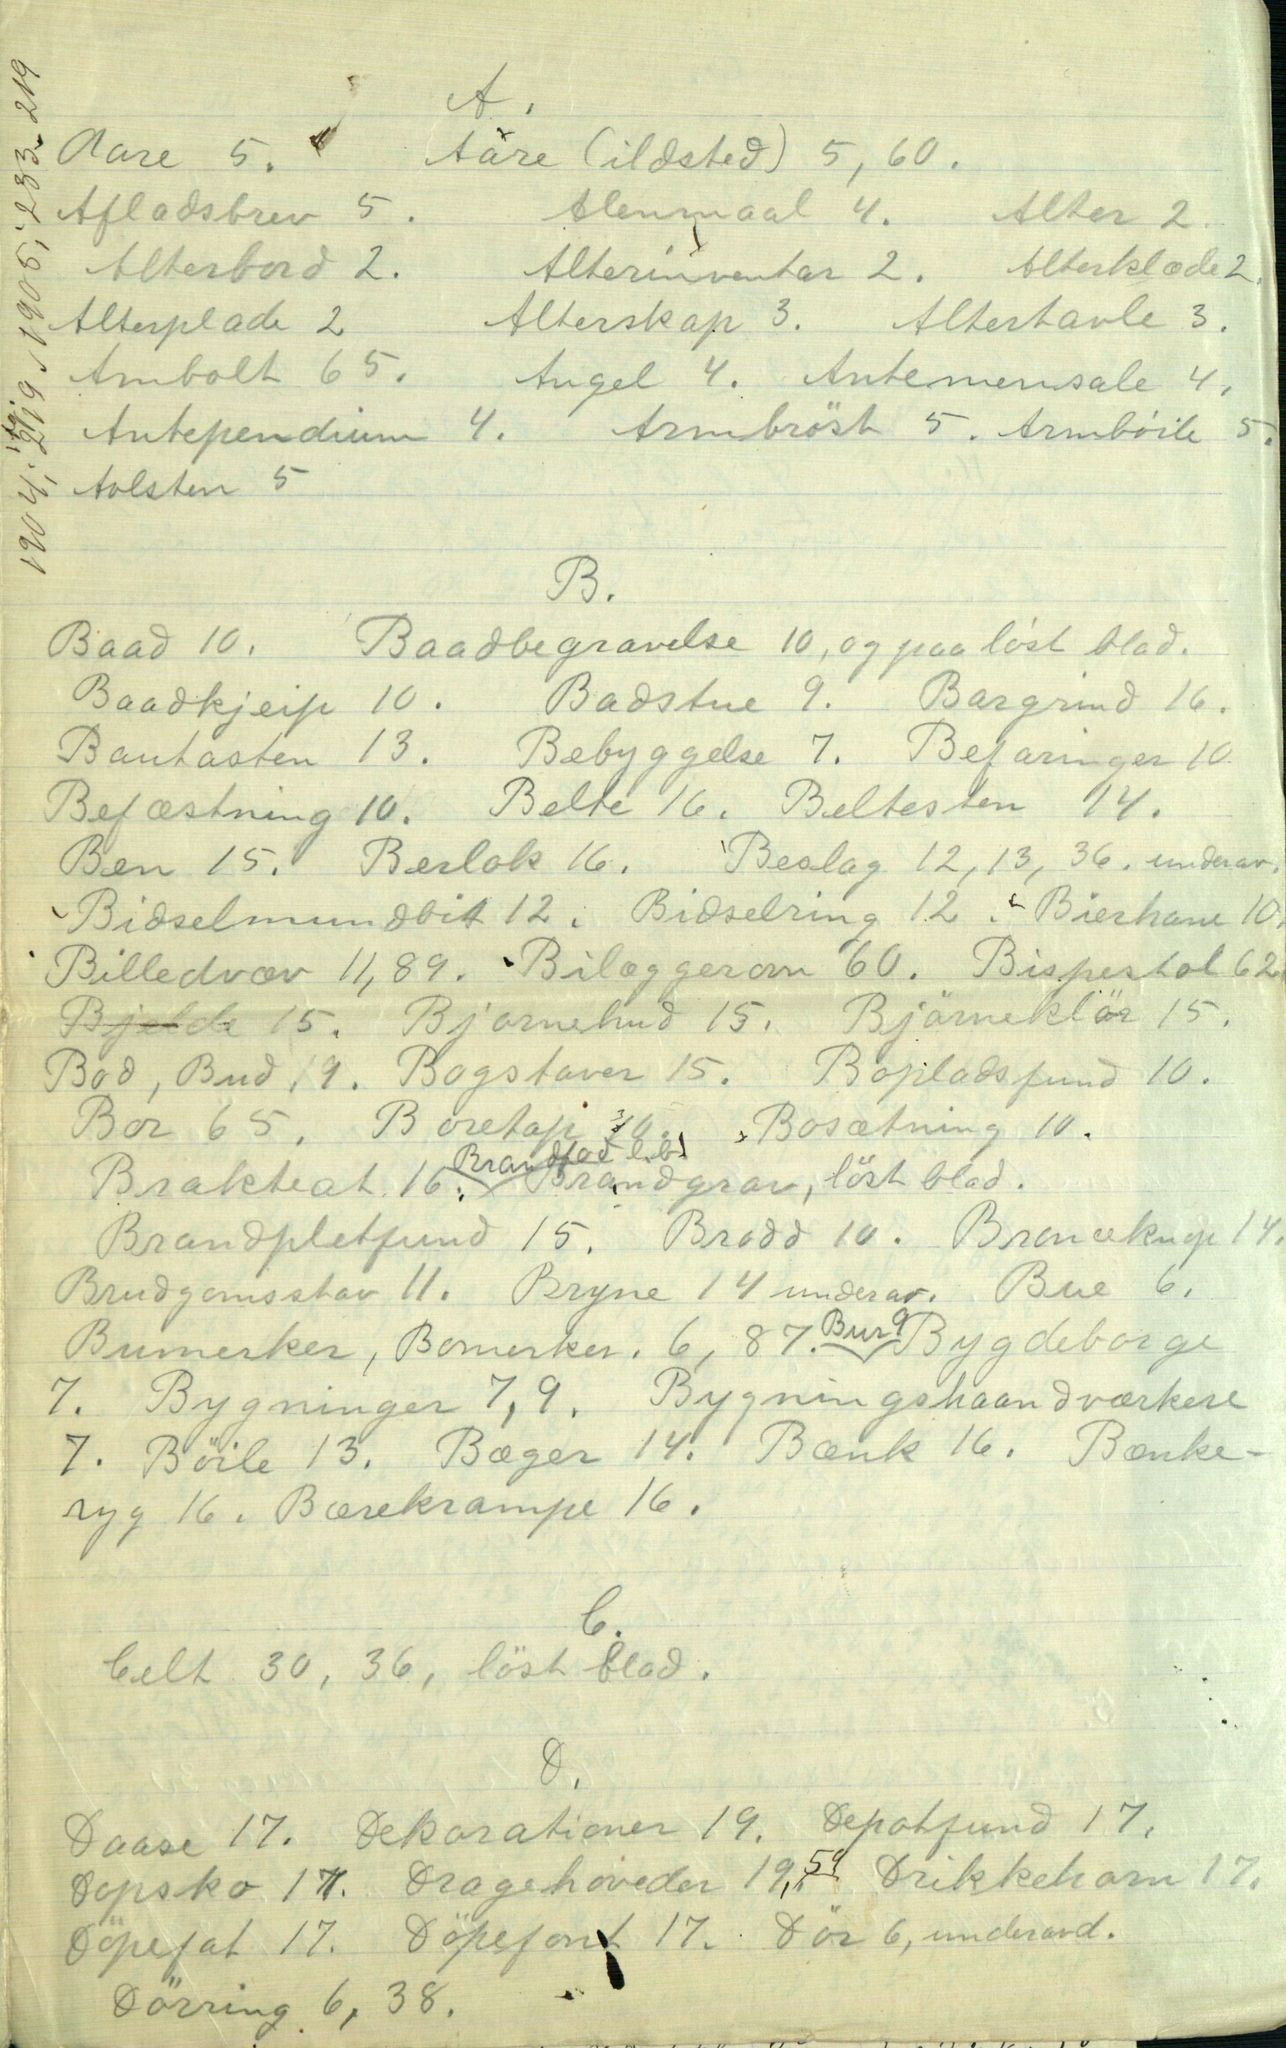 A.
Aare 5. Aäre (ildsted) 5, 60.
Afladsbrev 5. Alenmaal 4. Alter 2.
Alterbord 2. Alterinventar 2. Alterklæde 2.
Alterplade 2 Alterskap 3. Altertavle 3.
Ambolt 65. Angel 4. Antemensale 4.
Antependium 4. Armbröst 5. Armböile 5.
Avlsten 5
B.
Baad 10. Baadbegravelse 10, og paa löst blad.
Baadkjeip 10. Badstue 9. Bargrind 16.
Bautasten 13. Bebyggelse 7. Befaringer 10
Befæstning 10. Belte 16. Beltesten 14.
Ben 15. Berlok 16. Beslag 12, 13, 36. underav.
Bidselmundbit 12. Bidselring 12. Bierhane 10.
Billedvæv 11, 89. Bilæggerovn 60. Bispestol 62
Bjelde 15. Bjørnehud 15. Björneklör 15.
Bod, Bud, 9. Bogstaver 15. Bopladsfund 10.
Bor 65. Boretap 30. Bosætning 10.
Brakteat 16. Brandfad l.bl Brandgrav, löst blad.
Brandpletfund 15. Brodd 10. Bronceknap 14.
Brudgomsstav 11. Bryne 14 underav. Bue 6.
Bumerker, Bomerker. 6, 87. Bur 9 Bygdeborge
7. Bygninger 7, 9. Bygningshaandværkere
7. Böile 13. Bæger 14. Bænk 16. Bænke-
ryg 16. Bærekrampe 16.
C.
Celt 30, 36, löst blad.
D.
Daase 17. Dekorationer 19. Depotfund 17.
Dopsko 17. Dragehoveder 19, 59 Drikkehorn 17.
Döpefat 17. Döpefont 17. Dör 6, underavd.
Dörring 6, 38.